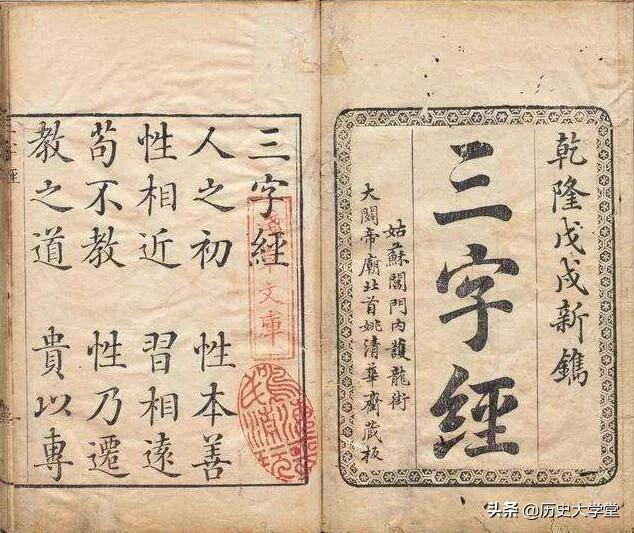 乾隆戊戌新鐫
三字經
姑蘇閶門內護龍街
大關帝廟北首姚清華齋藏板
三字經
人之初 性本善
性相近 習相遠
苟不教 性乃遷
教之道 貴以專
文庫
头条 @历史大学堂